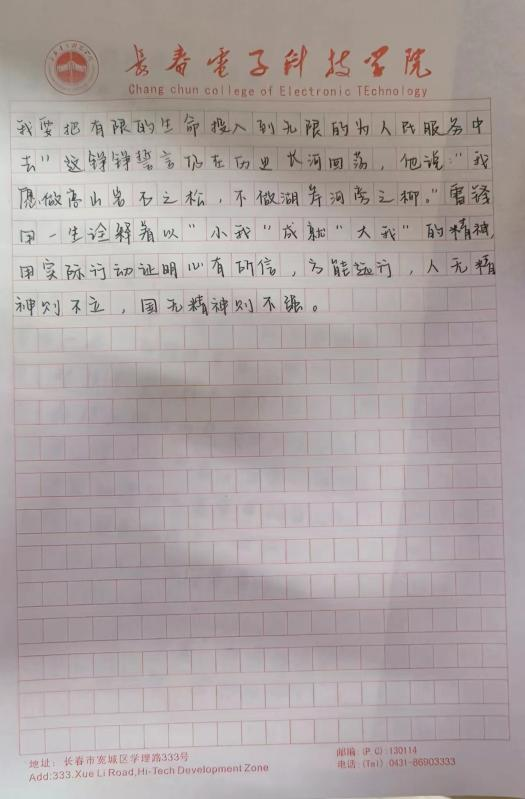 长春电子科技学院
Chang chun college of Electronic TEchnology
我要把有限的生命投入到无限的为人民服务中
去"这铮铮誓言仍在历史长河回荡,他说:"我
愿做高山岩石之松,不做湖岸河旁之柳。"雷锋
用一生诠释着以"小我"成就"大我"的精神,
用实际行动证明心有所信,方能远行,人无精
神则不立,国无精神则不强。
地址:长春市宽城区学理路333号
邮编:(P.C):130114
Add:333.Xue Li Road,Hi-Tech Development Zone
电话:(Tel) 0431-86903333